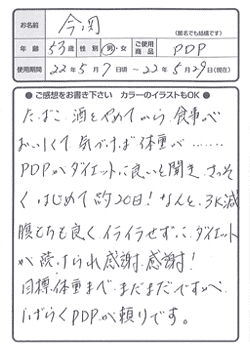 お名前 今関
(匿名でも結構です)
年齢 53歳 性別 男・女 ご使用商品 PDP
使用期間 22年5月7日頃〜22年5月29日(現在)
●ご感想をお書き下さい カラーのイラストもOK●
たばこ、酒をやめてから、食事が
おいしくて、気づけば体重が……
PDPがダイエットに良いと聞き、さっそく
はじめて約20日!なんと、3K減
腹もちも良く、イライラせずに、ダイエット
が続けられ感謝、感謝!
目標体重まで、まだまだですが、
しばらくPDPが頼りです。